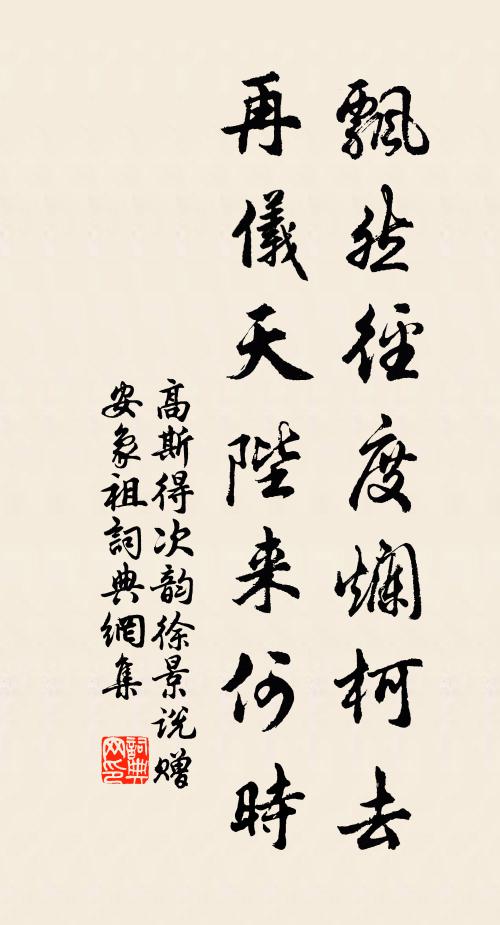 飄然徑度爛柯去
再儀天陛来何時
高斯得次韵徐景说赠
安象祖詞典網集
詞典网印